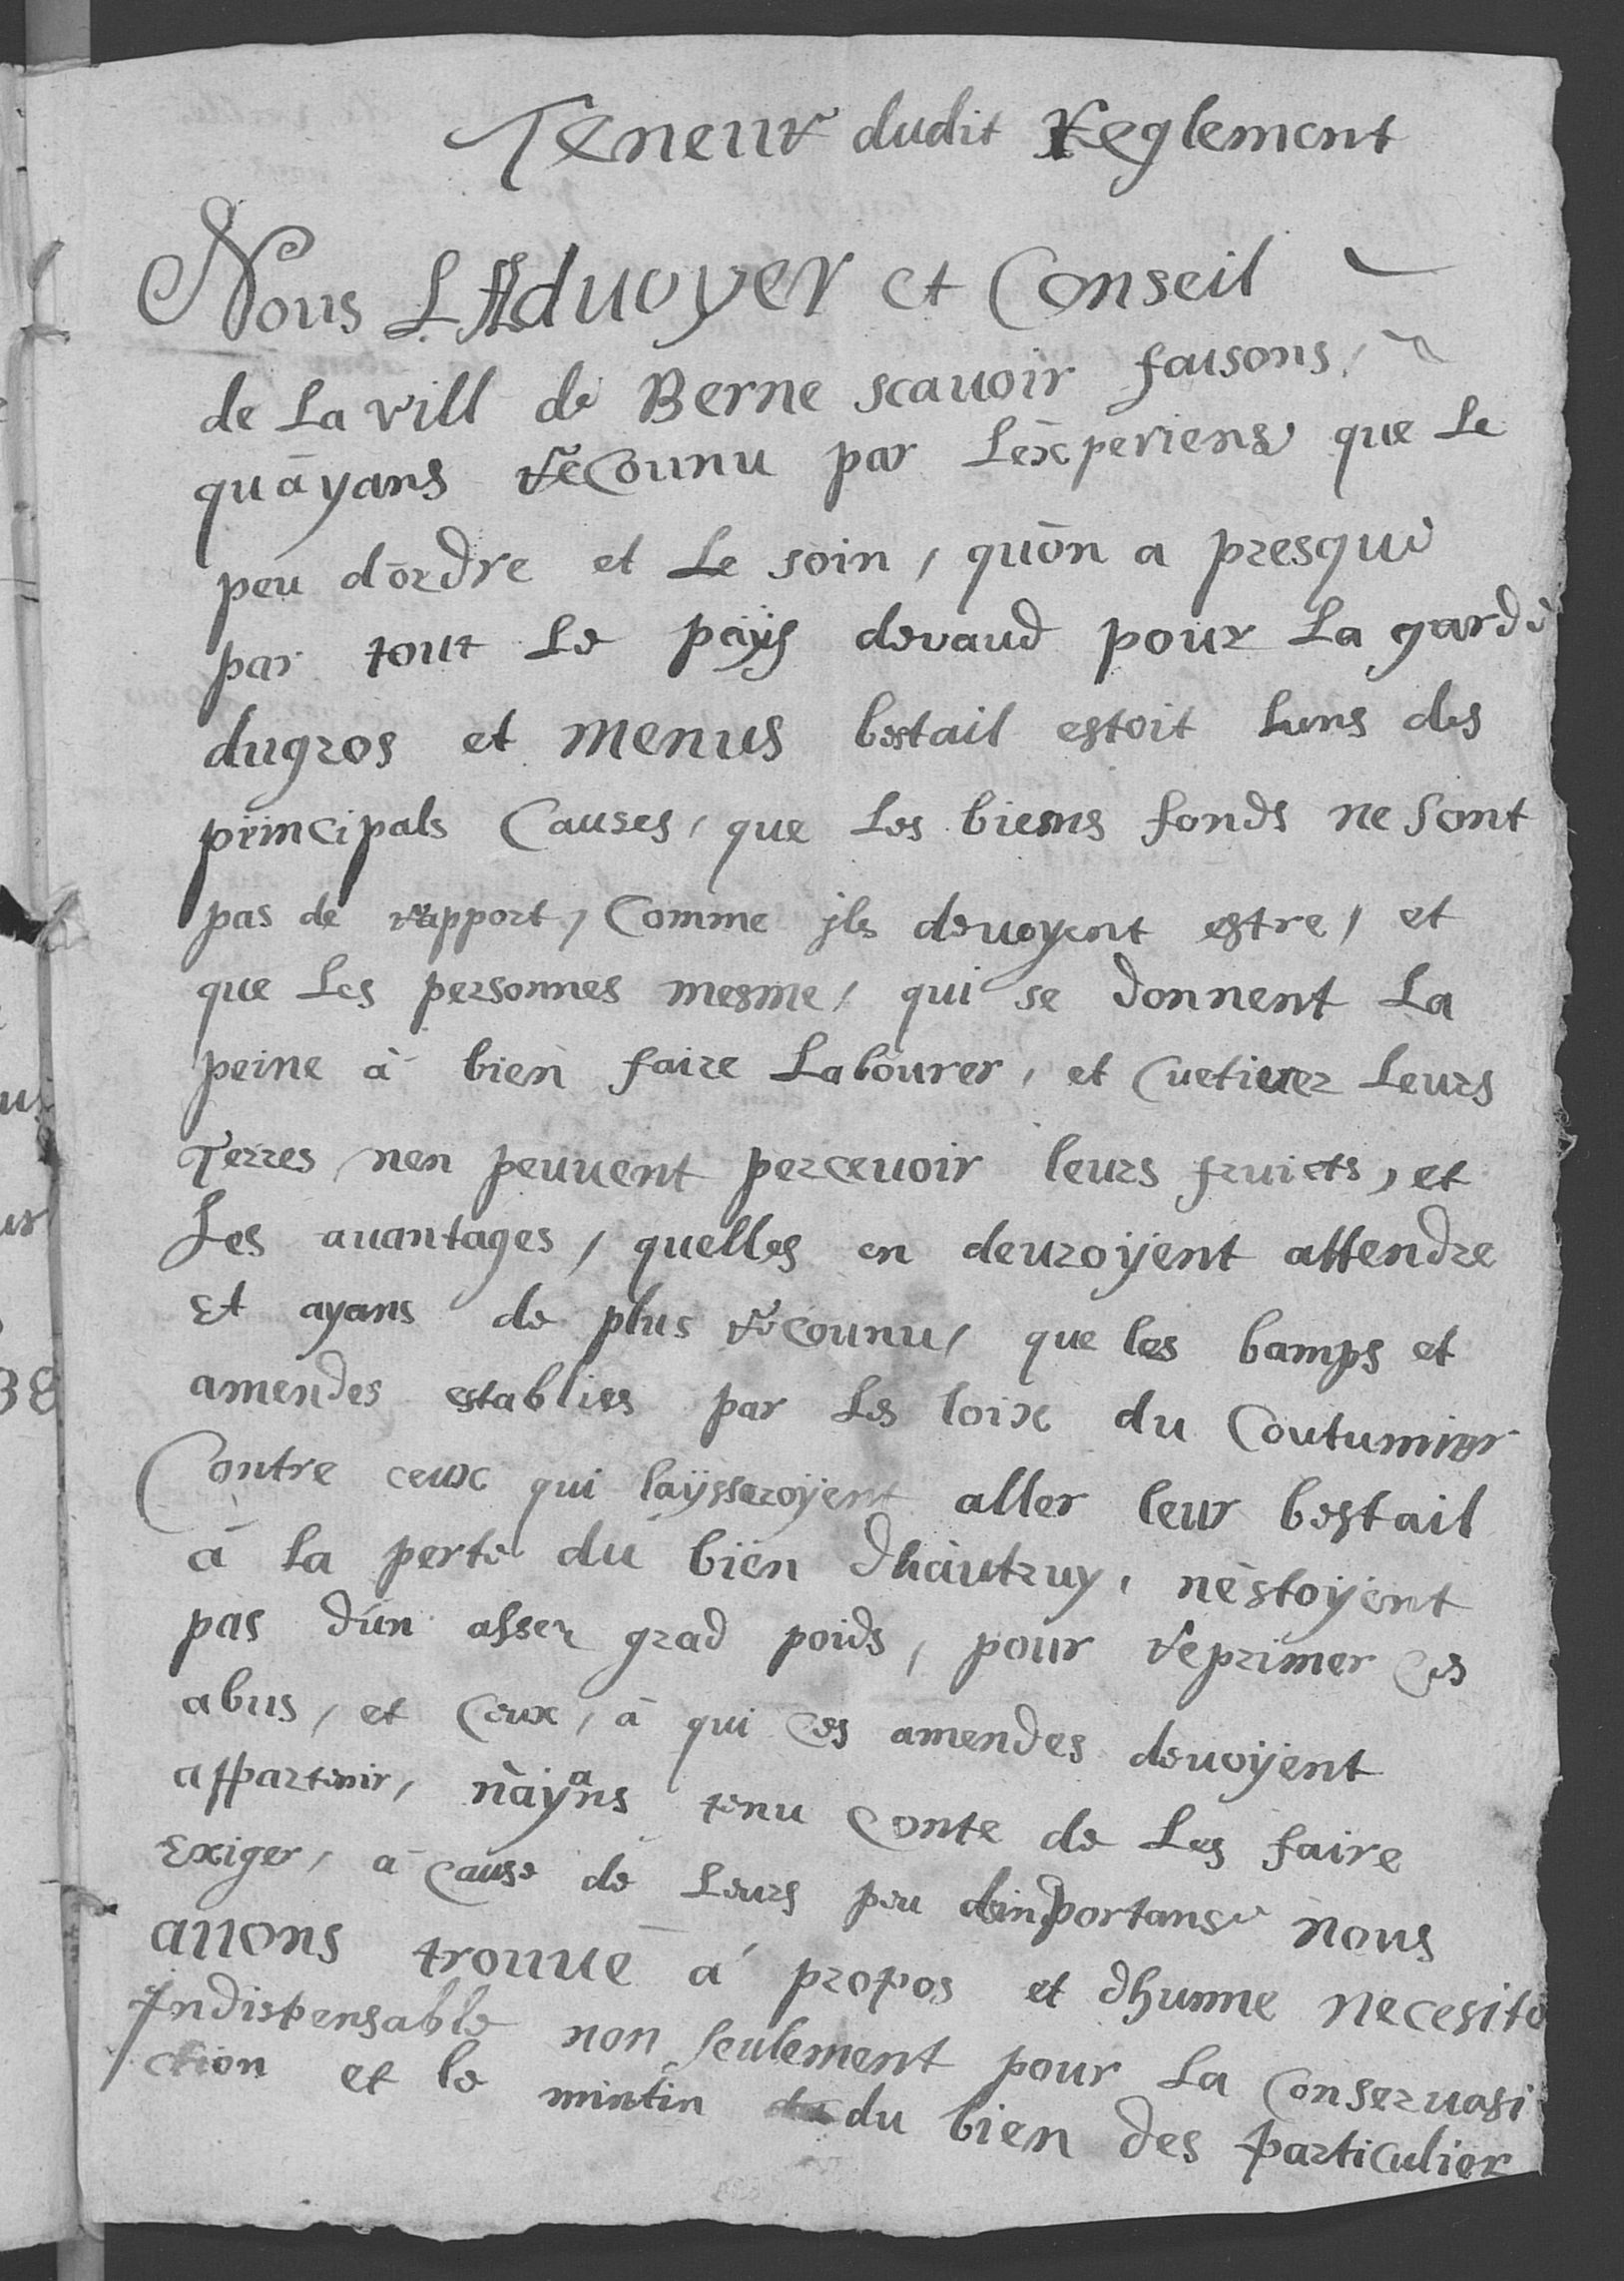 Teneur dudit Reglement
Nous L'Aduoyer et Conseil
de La vill de Berne scauoir faisons,
qu'ayans reCounu par L'experiense que Le
peu d'ordre et Le soin, qu'on a presque
par tout Le paÿs devaud pour La garde
dugros et menus bestail estoit huns des
principals Causes, que Les biens fonds ne sont
pas de rapport, Comme jls devoyent estre, et
que Les personnes mesme, qui se donnent La
peine à bien faire Labourer, et Cuetiuer Leurs
Terres, nen peuuent perceuoir leurs fruicts, et
Les auantages, quelles en deuroÿent attendre
Et ayans de plus reCounu, que les bamps et
amendes establies par Les loix du Coutumier
Contre ceux qui laÿsseroÿent aller leur bestail
à La perte du bien dhautruy, n'estoÿent
pas d'un asser grad poids, pour reprimer Ces
abus, et Ceux, à qui Ces amendes devoÿent
appartenir, n'aÿans tenu Conte de Les faire
Exiger, à Cause de Leurs peu dinportanse nous
auons trouué à propos et dhunne necesité
Indispensable non seulement pour La Conseruasi
ction et le mintin du bien des particulier